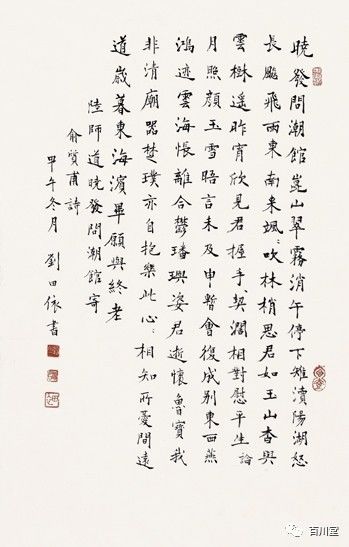 曉發問潮館崑山翠霧消午停下雉瀆陽湖怒
長飈飛雨東南来颯〻吹林梢思君如玉山杳與
雲樹遥昨宵欣見君握手契闊相對慰平生論
月照顔玉雪晤言未及申暫會復成别東西燕
鴻迹雲海悵離合鬱璠璵姿君逝懷魯寶我
非清廟器楚璞亦自抱樂此心〻相知所愛間遠
道歲暮東海濱畢願與終老
陸師道曉發問潮館寄
俞質甫詩
甲午冬月 劉田依書
百川堂